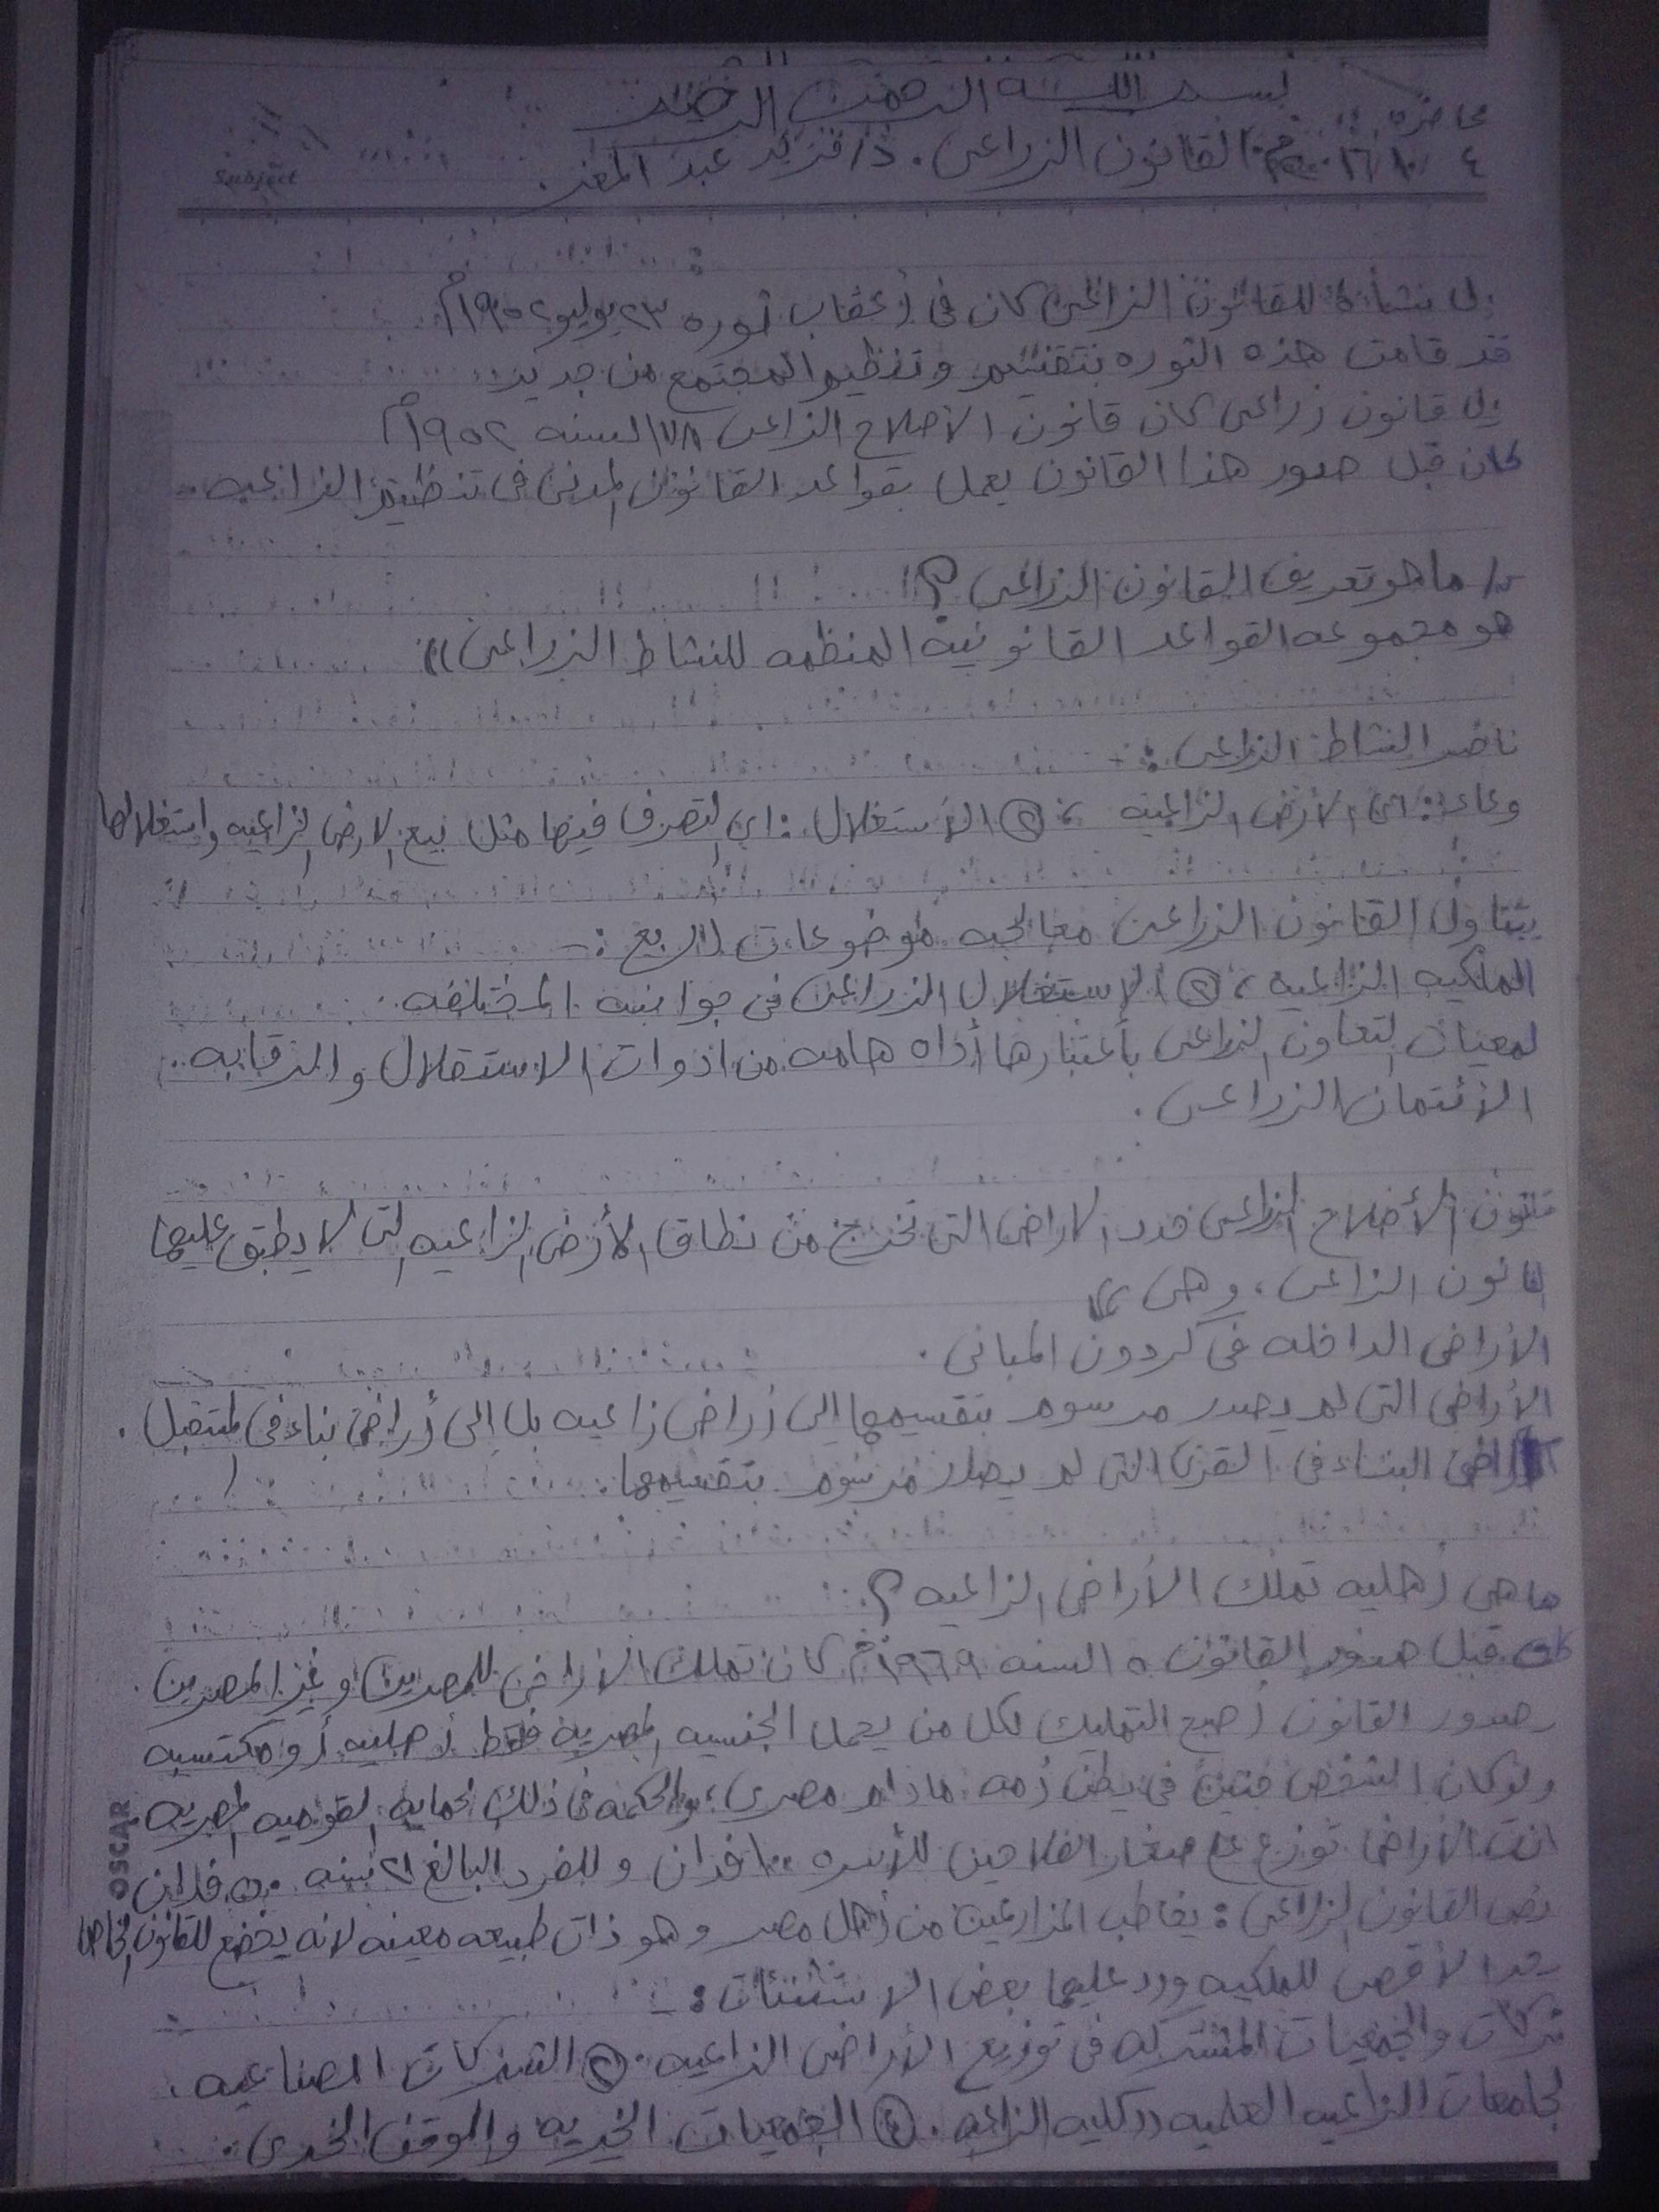 بسم الله الرحمن الرحيم
محاضرة
القانون الزراعى . د/ فريد عبد المعز .
Subject
نشأة للقانون الزراعى كان فى أعقاب ثوره ٢٣ يوليو ١٩٥٢م
قد قامت هذه الثوره بتقنين وتنظيم المجتمع من جديد
قانون زراعى كان قانون الاصلاح الزراعى ١٧٨ لسنه ١٩٥٢م
كان قبل صدور هذا القانون يعمل بقواعد القانون المدنى فى تنظيم الزراعيه
س/ ما هو تعريف القانون الزراعى ؟
هو مجموعه القواعد القانونية المنظمه للنشاط الزراعى))
ناصر النشاط الزراعى :
وعاء : اى الأرض الزراعية ، ② الأستغلال : اى التصرف فيها مثل بيع الارض الزراعيه واستغلالها
يتناول القانون الزراعى معالجه موضوعات اربع :-
الملكيه الزراعية ، ② الاستغلال الزراعى فى جوانبه المختلفه .
لمعيات التعاون الزراعى بأعتبارها أداه هامه من ادوات الاستقلال والرقابه ..
الأئتمان الزراعى .
قانون الأصلاح الزراعى حدد الاراضى التى تخرج من نطاق الأرض الزراعيه التى لا يطبق عليها
انون الزراعى ، وهى
الأراضى الداخله فى كردون المبانى .
الأراضى التى لم يصدر مرسوم بتقسيمها إلى أراضى زراعيه بل إلى أراضى بناء فى لمتقبل .
اراضى البناء فى القرى التى لم يصدر مرسوم بتقسيمها .
ما هى أهليه تملك الأراضى الزراعيه ؟
قبل صدور القانون ٥ السنه ١٩٦٩م كان تملك الأراضى للمصريين وغير المصريين .
صدور القانون أصبح التمليك لكل من يحمل الجنسيه المصريه فقط أصليه أو مكتسبه
ولو كان الشخص جنين فى بطن أمه مادام مصرى ، والحكمه فى ذلك لحمايه القوميه المصريه .
انت الأراضى توزع على صغار الفلاحين للأسره ١٠٠ فدان وللفرد البالغ ٢١ سنه ٥٠ فدان
نص القانون الزراعى : يخاطب المزارعين من أهل مصر وهو ذات طبيعه معينه لانه يخضع للقانون الخاص
حد الأقصى للملكيه ورد عليها بعض الاستثنئات :
شركات والجمعيات المشتركه فى توزيع الأراضى الزراعيه . ② الشركات الصناعيه .
لجامعات الزراعيه العلميه ((كليه الزراعه . ④ الجمعيات الخيريه والوقف الخيرى .
OSCAR